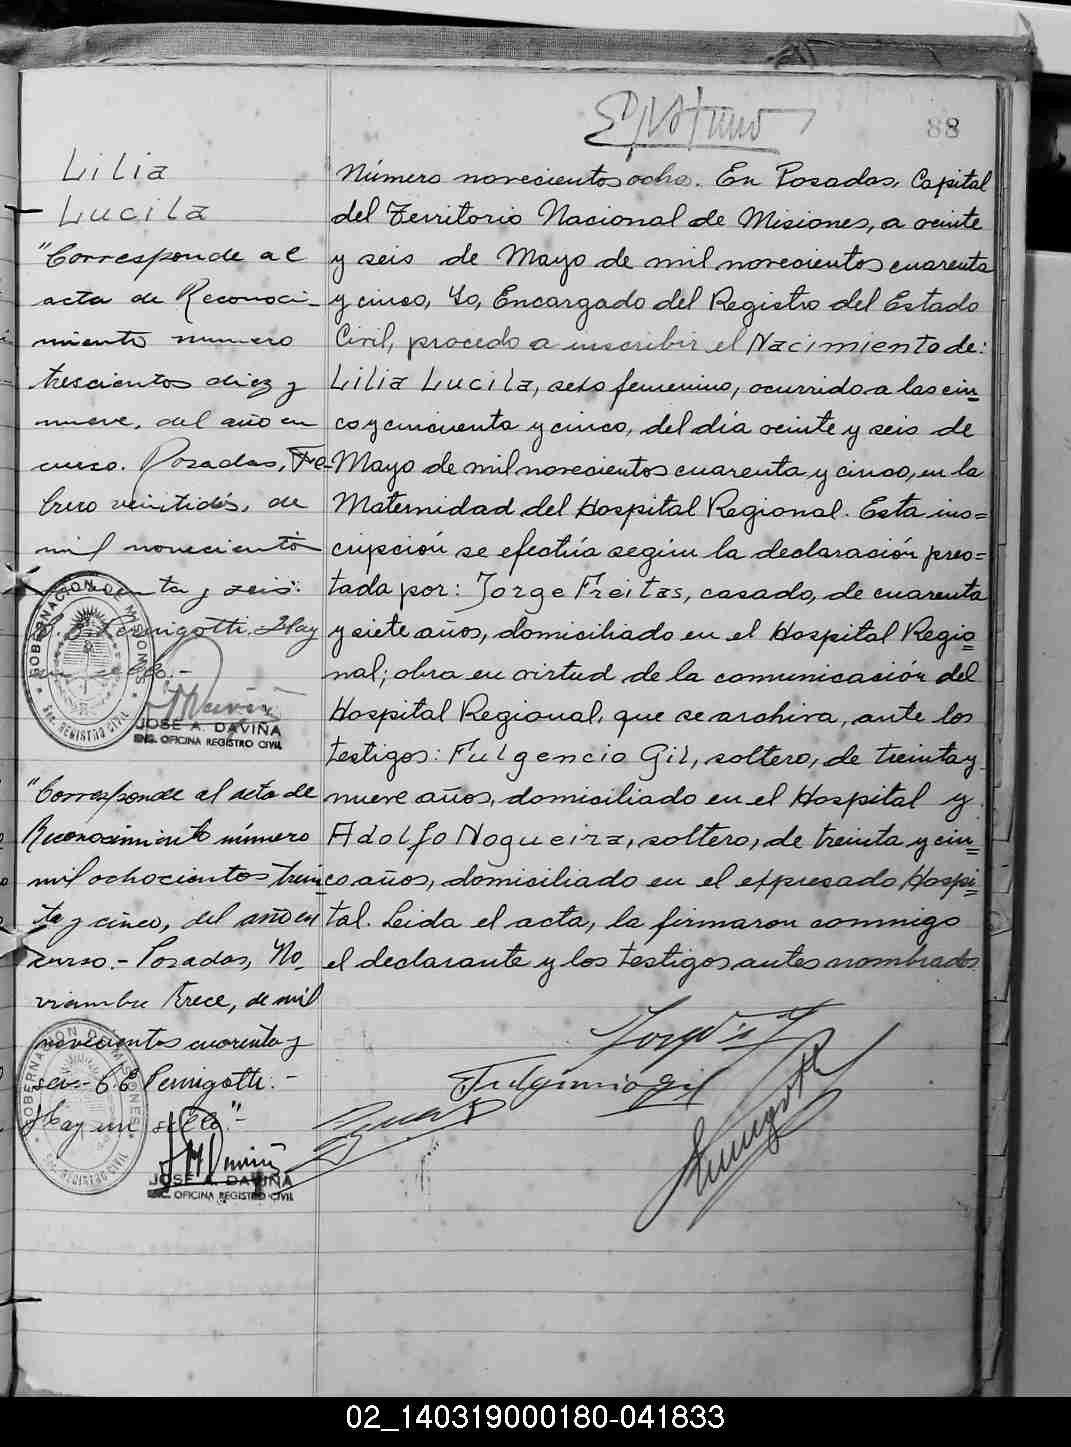 88
Lilia
Lucila
"Corresponde al
acta de Reconoci-
miento numero
trescientos diez y
nueve, del año en
curso. Posadas, Fe-
brero veintidós, de
mil novecientos
ta y seis:
Pernigotti. Hay
JOSE A. DAVIÑA
ENC. OFICINA REGISTRO CIVIL
GOBERNACION DE MISIONES
REGISTRO CIVIL
"Corresponde al acta de
Reconocimiento número
mil ochocientos trein-
ta y cinco, del año en
curso.- Posadas, No-
viembre trece, de mil
novecientos cuarenta y
seis- E. Pernigotti.-
Hay un sello"-
JOSE A. DAVIÑA
ENC. OFICINA REGISTRO CIVIL
GOBERNACION DE MISIONES
REGISTRO CIVIL
Número novecientos ocho. En Posadas, Capital
del Territorio Nacional de Misiones, a veinte
y seis de Mayo de mil novecientos cuarenta
y cinco, Yo, Encargado del Registro del Estado
Civil, procedo a inscribir el Nacimiento de:
Lilia Lucila, sexo femenino, ocurrido a las cin=
co y cincuenta y cinco, del día veinte y seis de
Mayo de mil novecientos cuarenta y cinco, en la
Maternidad del Hospital Regional. Esta ins=
cripción se efectúa según la declaración pres=
tada por: Jorge Freitas, casado, de cuarenta
y siete años, domiciliado en el Hospital Regio=
nal; obra en virtud de la comunicación del
Hospital Regional, que se archiva, ante los
testigos: Fulgencio Gil, soltero, de treinta y
nueve años, domiciliado en el Hospital y
Adolfo Nogueira, soltero, de treinta y cin=
co años, domiciliado en el expresado Hospi=
tal. Leida el acta, la firmaron conmigo
el declarante y los testigos antes nombrados
Fulgencio Gil
02_140319000180-041833